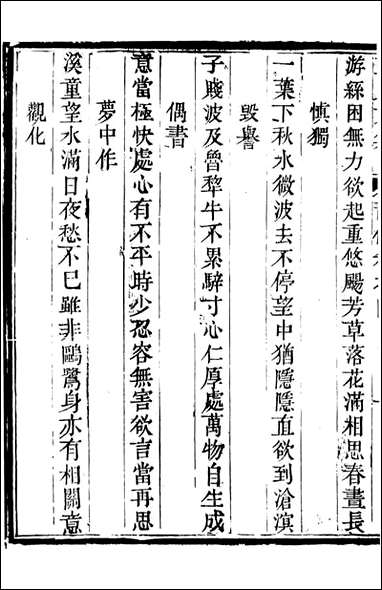 游絲困無力欲起重悠颺芳草落花滿相思春晝長
慎獨
一葉下秋水微波去不停望中猶隱隱直欲到滄溟
毀譽
子賤波及魯犁牛不累騂寸心仁厚處萬物自生成
偶書
意當極快處心有不平時少忍容無害欲言當再思
夢中作
溪童望水滿日夜愁不已雖非鷗鷺身亦有相關意
觀化